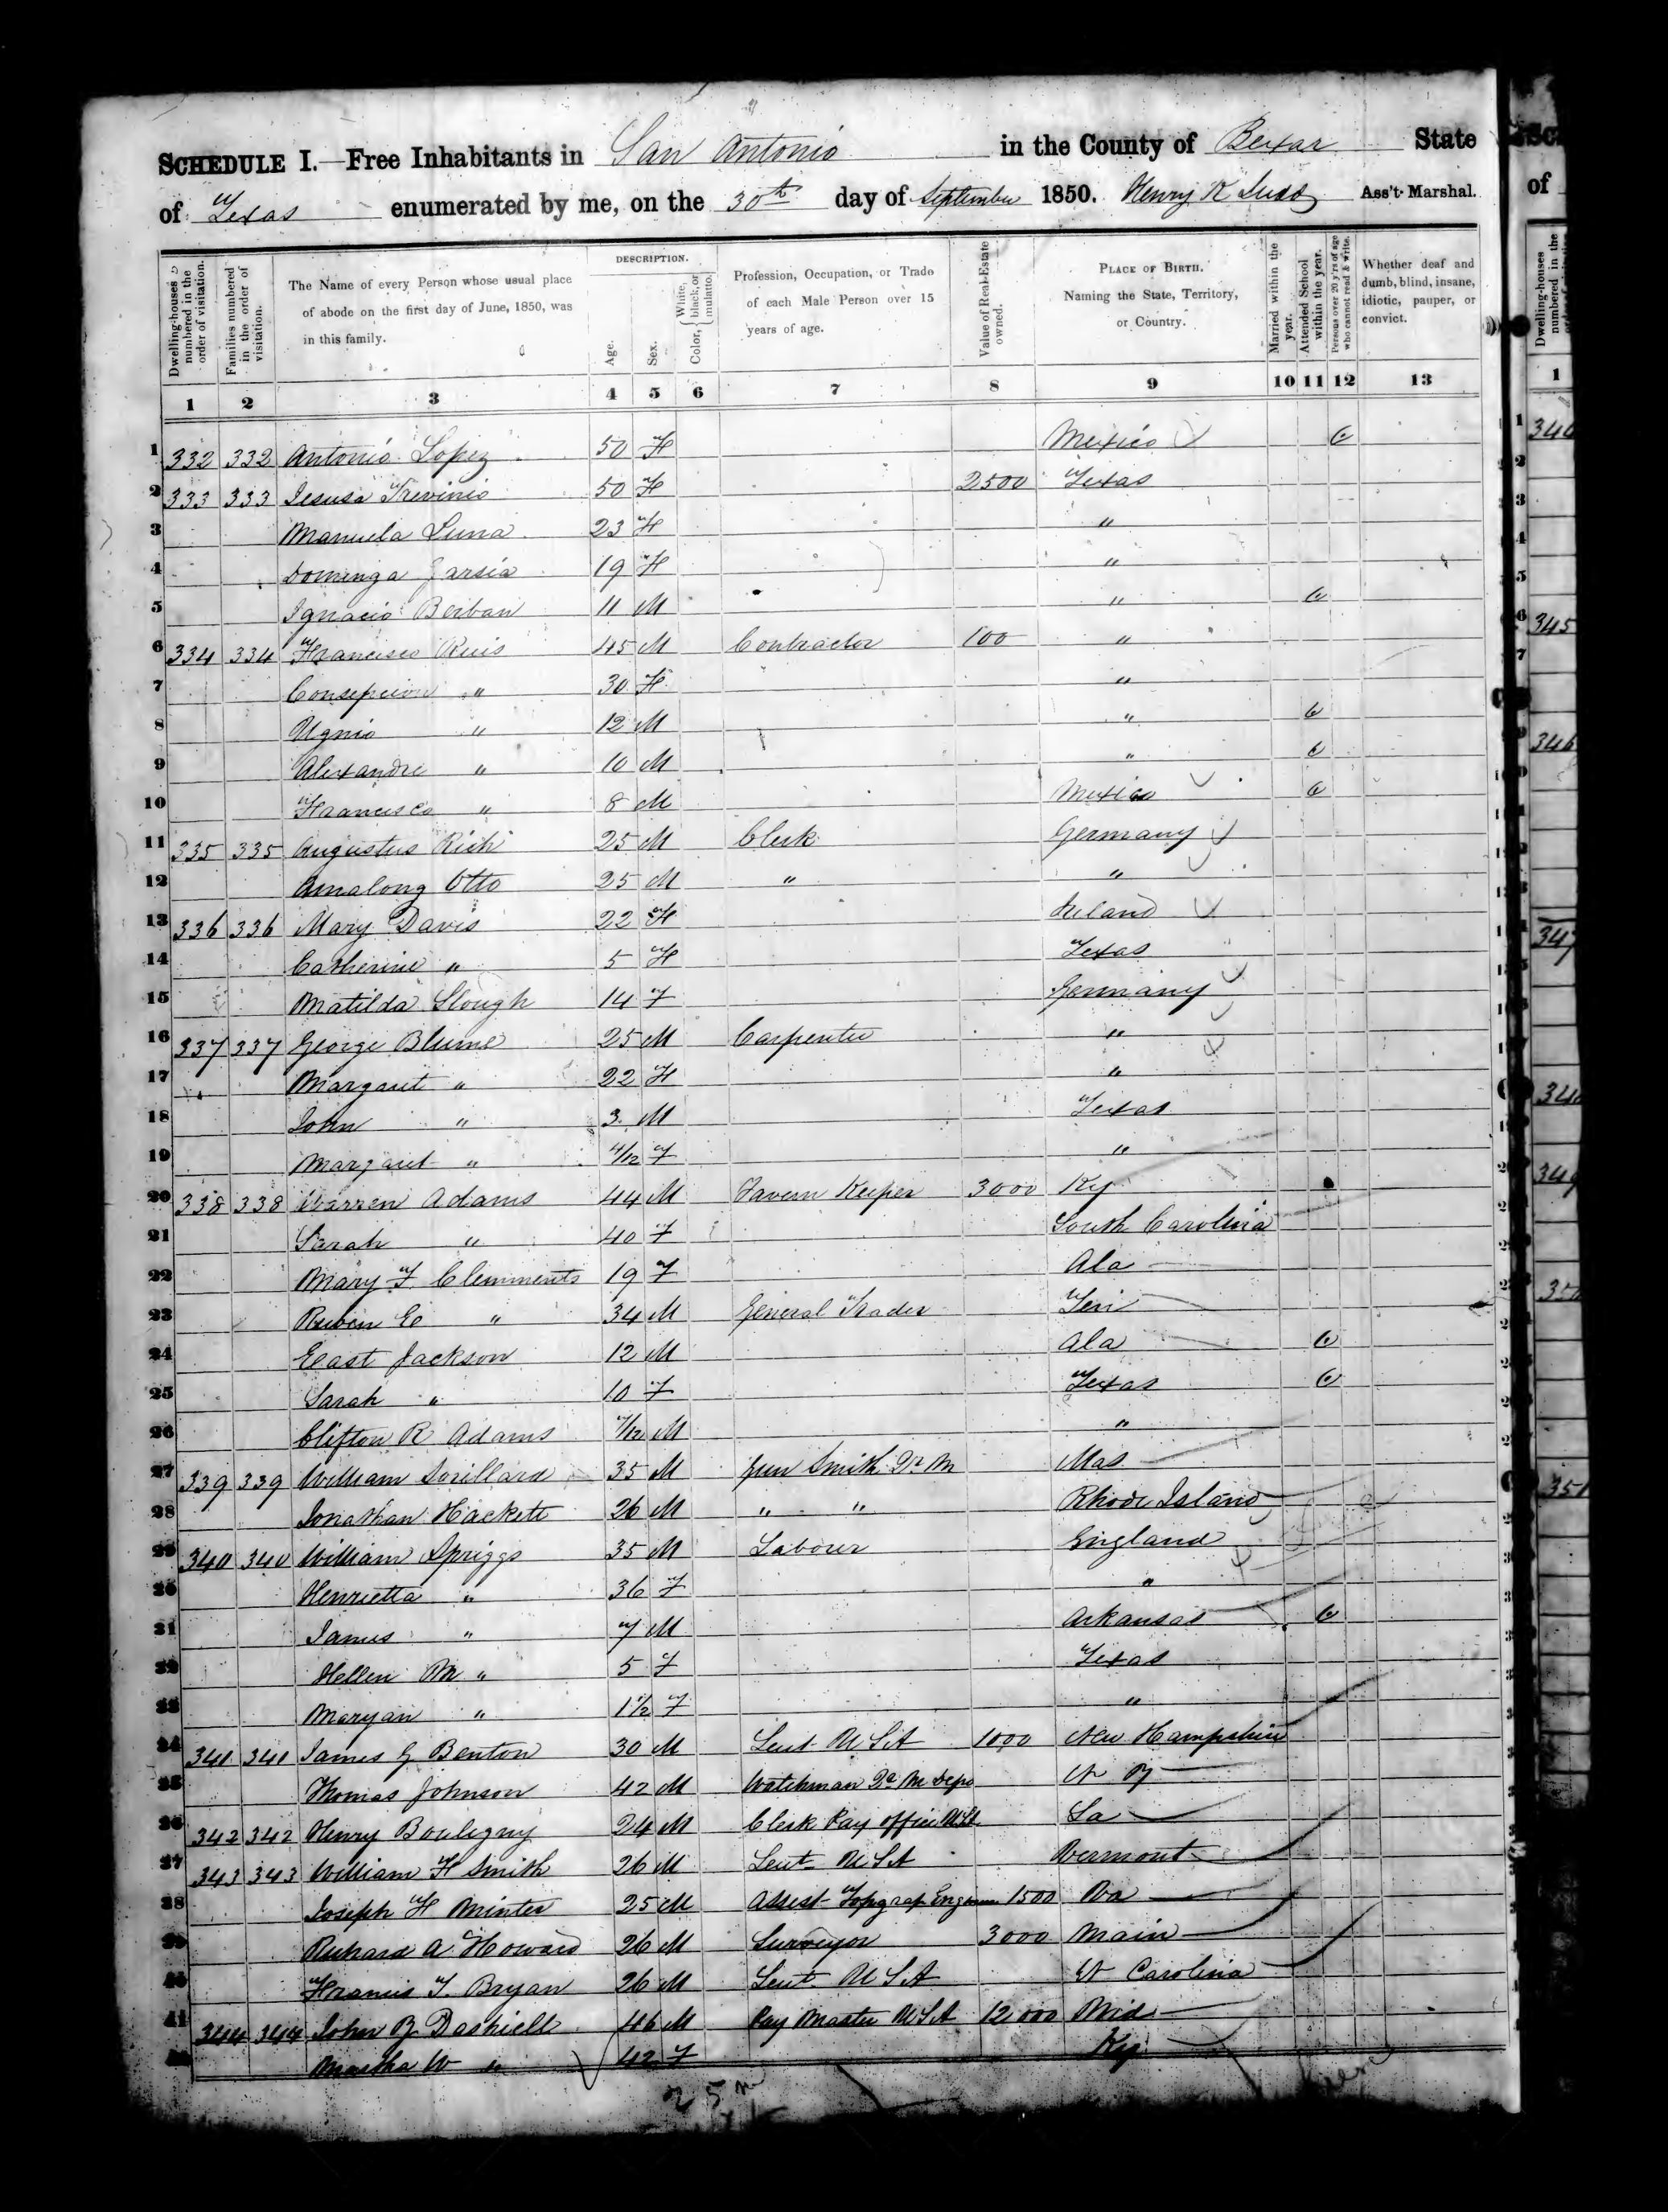 SCHEDULE I.—Free Inhabitants in San Antonio in the County of Bexar State
of Texas enumerated by me, on the 30th day of September 1850. Henry K Ass't Marshal.
Dwelling-houses numbered in the order of visitation.
Families numbered in the order of visitation.
The Name of every Person whose usual place of abode on the first day of June, 1850, was in this family.
DESCRIPTION.
Age.
Sex.
Color, { White, black, or mulatto.
Profession, Occupation, or Trade of each Male Person over 15 years of age.
Value of Real Estate owned.
PLACE OF BIRTH. Naming the State, Territory, or Country.
Married within the year.
Attended School within the year.
Persons over 20 y'rs of age who cannot read & write.
Whether deaf and dumb, blind, insane, idiotic, pauper, or convict.
1 2 3 4 5 6 7 8 9 10 11 12 13
1 332 332 Antonio Lopez 50 F Mexico
2 333 333 Jesusa Trevinio 50 F 2500 Texas
3 Manuela Luna 23 F "
4 Dominga Garsia 19 F "
5 Ignacio Berban 11 M "
6 334 334 Francisco Ruis 45 M Contractor 100 "
7 Consepcion " 30 F "
8 Ugnio " 12 M "
9 Alexandre " 10 M "
10 Francisco " 8 M Mexico
11 335 335 Augustus Rich 25 M Clerk Germany
12 Amalong Otto 25 M " "
13 336 336 Mary Davis 22 F Ireland
14 Catherine " 5 F Texas
15 Matilda Slough 14 F Germany
16 337 337 George Blume 25 M Carpenter "
17 Margaret " 22 F "
18 John " 3 M Texas
19 Margaret " 4/12 F "
20 338 338 Warren Adams 44 M Tavern Keeper 3000 Ky
21 Sarah " 40 F South Carolina
22 Mary F Clemments 19 F Ala
23 Ruben E " 34 M General Trader Ten
24 East Jackson 12 M Ala
25 Sarah " 10 F Texas
26 Clifton R Adams 7/12 M "
27 339 339 William Sorillard 35 M Gun Smith Qr M Mas
28 Jonathan Hackett 26 M " " Rhode Island
29 340 340 William Spriggs 35 M Labourer England
30 Henrietta " 36 F "
31 James " 7 M Arkansas
32 Hellen M " 5 F Texas
33 Maryan " 1 1/2 F "
34 341 341 James G Benton 30 M Leut U S A 1000 New Hampshire
35 Thomas Johnson 42 M Watchman Qr M Depo N Y
36 342 342 Henry Bouligny 24 M Clerk Pay office La
37 343 343 William F Smith 26 M Leut U S A Vermont
38 Joseph F Minter 25 M Assest Topgrap Engineer 1500 Va
39 Richard A Howard 26 M Surveyor 3000 Main
40 Francis T. Bryan 26 M Leut U S A N Carolina
41 344 344 John Y Dashiell 46 M Pay Master U S A 12,000 Mid
42 Martha W " 42 F Ky
25 m
of
Dwelling-houses numbered in the
1
345
346
347
349
351